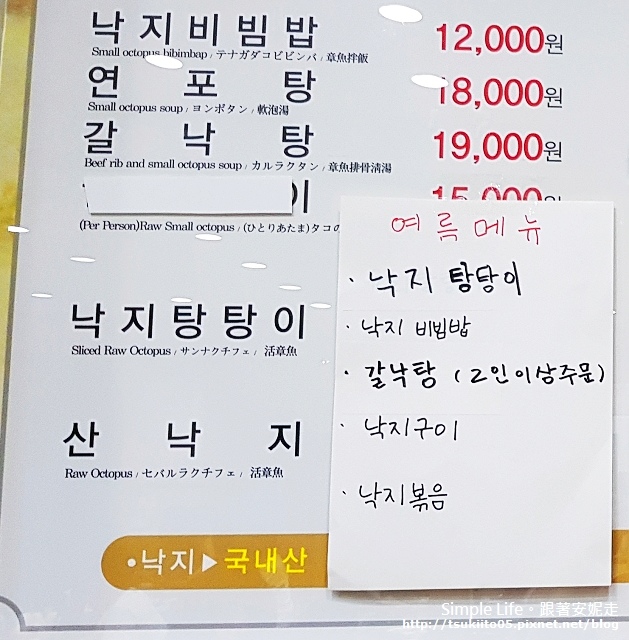 낙지비빔밥 12,000원
Small octopus bibimbap / テナガダコビビンバ / 章魚拌飯
연포탕 18,000원
Small octopus soup / ヨンポタン / 軟泡湯
갈낙탕 19,000원
Beef rib and small octopus soup / カルラクタン / 章魚排骨清湯
이 15,000원
(Per Person)Raw Small octopus / (ひとりあたま)タコの
낙지탕탕이
Sliced Raw Octopus / サンナクチフェ / 活章魚
산낙지
Raw Octopus / セバルラクチフェ / 活章魚
•낙지▶국내산
여름메뉴
· 낙지탕탕이
· 낙지 비빔밥
· 갈낙탕 (2인이상주문)
· 낙지구이
· 낙지볶음
Simple Life。跟著安妮走
http://tsukiito05.pixnet.net/blog